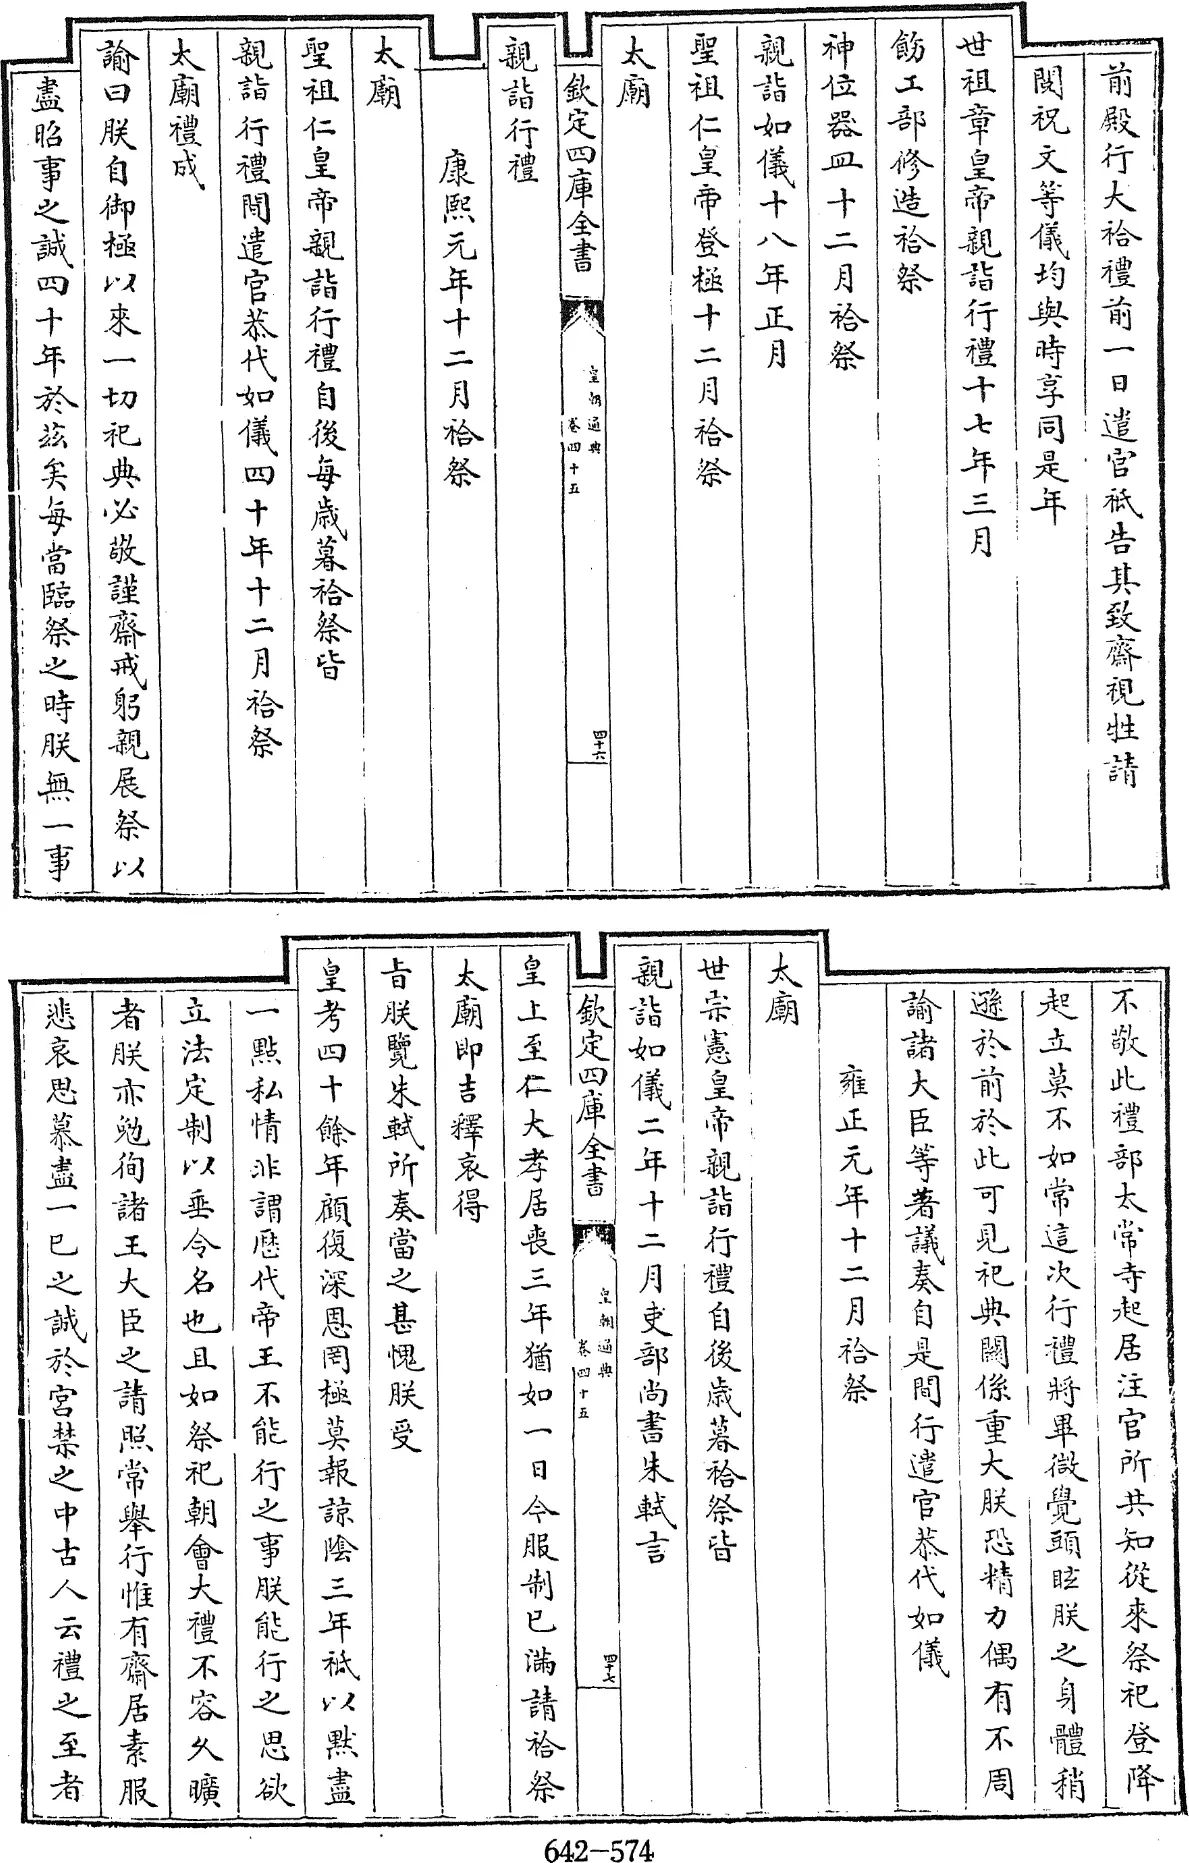 前殿行大祫禮前一日遣官祗告其致齋視牲請
閱祝文等儀均與時享同是年
世祖章皇帝親詣行禮十七年三月
飭工部修造祫祭
神位器皿十二月祫祭
親詣如儀十八年正月
聖祖仁皇帝登極十二月祫祭
太廟
欽定四庫全書
皇朝通典
卷四十五
四十六
親詣行禮
康熙元年十二月祫祭
太廟
聖祖仁皇帝親詣行禮自後每歲暮祫祭皆
親詣行禮間遣官恭代如儀四十年十二月祫祭
太廟禮成
諭曰朕自御極以來一切祀典必敬謹齋戒躬親展祭以
盡昭事之誠四十年於茲矣每當臨祭之時朕無一事
不敬此禮部太常寺起居注官所共知從來祭祀登降
起立莫不如常這次行禮將畢微覺頭眩朕之身體稍
遜於前於此可見祀典關係重大朕恐精力偶有不周
諭諸大臣等著議奏自是間行遣官恭代如儀
雍正元年十二月祫祭
太廟
世宗憲皇帝親詣行禮自後歲暮祫祭皆
親詣如儀二年十二月吏部尚書朱軾言
欽定四庫全書
皇朝通典
卷四十五
四十七
皇上至仁大孝居喪三年猶如一日今服制已滿請祫祭
太廟即吉釋哀得
旨朕覽朱軾所奏當之甚愧朕受
皇考四十餘年顧復深恩罔極莫報諒陰三年祗以默盡
一點私情非謂歷代帝王不能行之事朕能行之思欲
立法定制以垂令名也且如祭祀朝會大禮不容久曠
者朕亦勉徇諸王大臣之請照常舉行惟有齋居素服
悲哀思慕盡一己之誠於宮禁之中古人云禮之至者
642-574